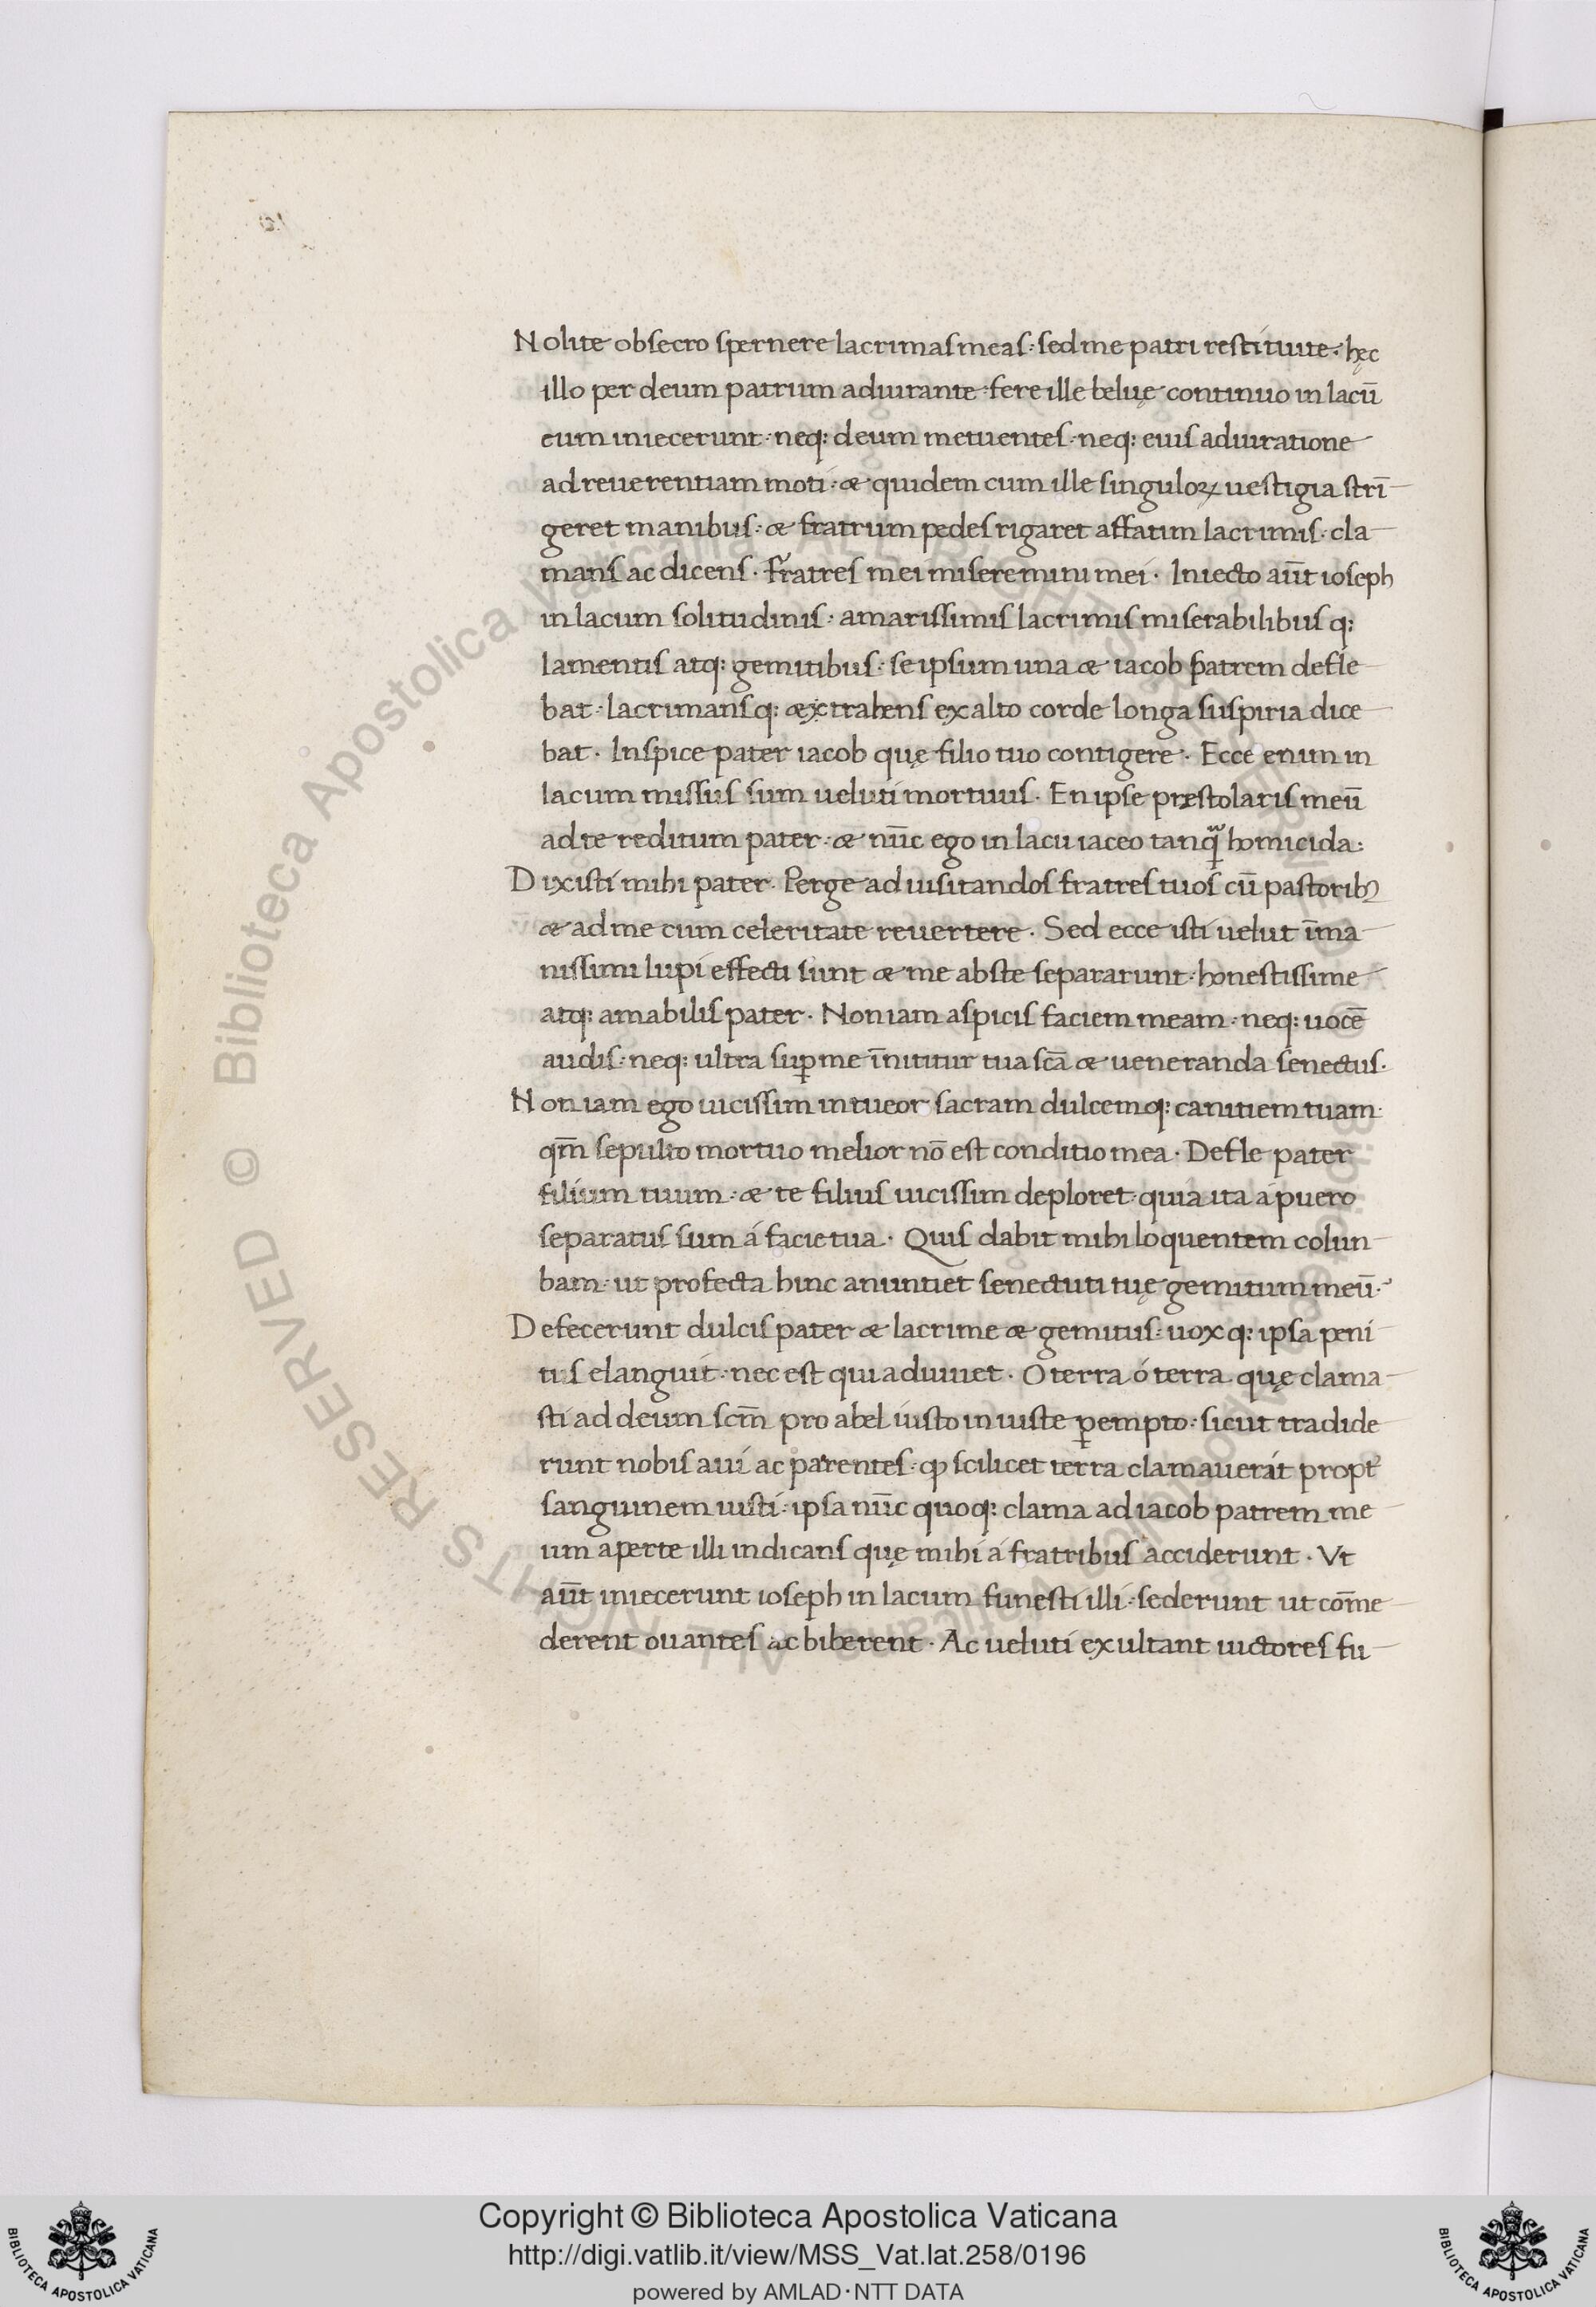 Nolite obsecro spernere lacrimas meas: sed me patri restituite: hęc
illo per deum patrum adiurante: fere ille beluę continuo in lacū
eum iniecerunt: neq: deum metuentes: neq: eius adiuratione
ad reuerentiam moti: & quidem cum ille singuloꝝ uestigia strī
geret manibus: & fratrum pedes rigaret affatim lacrimis: cla
mans ac dicens. Fratres mei miseremini mei. Iniecto aūt ioseph
in lacum solitudinis: amarissimis lacrimis miserabilibus q:
lamentis atq: gemitibus: se ipsum una & iacob patrem defle
bat: lacrimans q: & extrahens ex alto corde longa suspiria dice
bat. Inspice pater iacob quę filio tuo contigere. Ecce enim in
lacum missus sum ueluti mortuus. En ipse prestolaris meū
ad te reditum pater: & nūc ego in lacu iaceo tanqᷓ homicida:
Dixisti mihi pater. Perge ad uisitandos fratres tuos cū pastoribꝰ
& ad me cum celeritate reuertere. Sed ecce isti uelut īma
nissimi lupi effecti sunt & me abste separarunt: honestissime
atq: amabilis pater. Non iam aspicis faciem meam: neq: uocē
audis: neq: ultra suꝑ me īnititur tua scā & ueneranda senectus.
Non iam ego uicissim intueor sacram dulcemq: canitiem tuam:
qm̄ sepulto mortuo melior nō est conditio mea. Defle pater
filium tuum: & te filius uicissim deploret: quia ita á puero
separatus sum á facie tua. Quis dabit mihi loquentem colun
bam: ut profecta hinc anuntiet senectuti tuę gemitum meū.
Defecerunt dulcis pater & lacrime & gemitus: uox q: ipsa peni
tus elanguit: nec est qui adiuuet. O terra ó terra quę clama
sti ad deum scm̄ pro abel iusto iniuste ꝑempto: sicut tradide
runt nobis aui ac parentes: ꝙ scilicet terra clamauerat propt̄
sanguinem iusti: ipsa nūc quoq: clama ad iacob patrem me
um aperte illi indicans quę mihi á fratribus acciderunt. Vt
aūt iniecerunt ioseph in lacum funesti illi: sederunt ut cōme
derent ouantes ac biberent. Ac ueluti exultant uictores fu
© Biblioteca Apostolica Vaticana ALL RIGHTS RESERVED
Copyright © Biblioteca Apostolica Vaticana
http://digi.vatlib.it/view/MSS_Vat.lat.258/0196
powered by AMLAD·NTT DATA
BIBLIOTECA APOSTOLICA VATICANA
BIBLIOTECA APOSTOLICA VATICANA